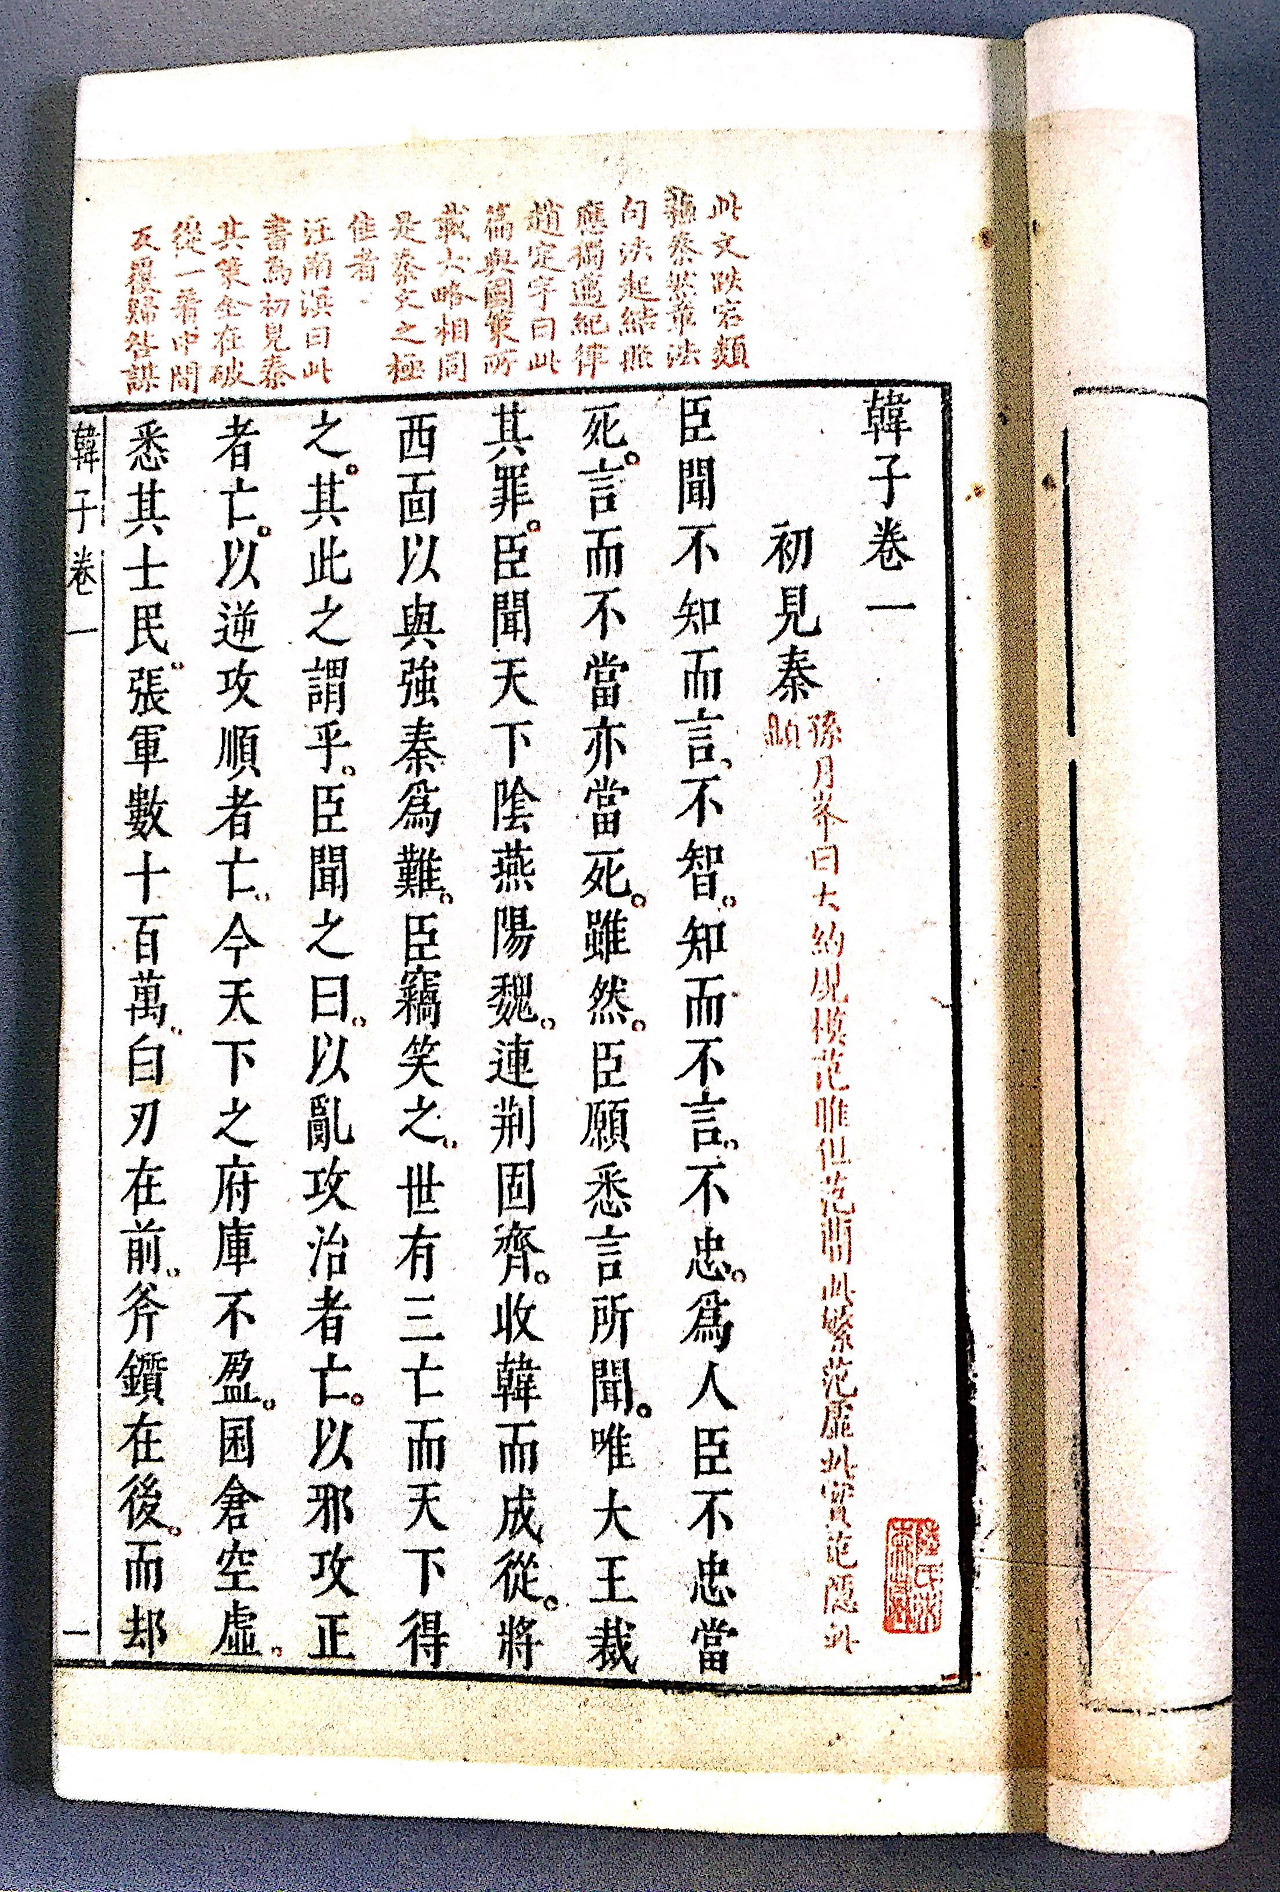 韓子卷一
初見秦
孫月峯曰大約規模范雎但范簡此繁范虛此實范隱此
顯
臣聞不知而言、不智。知而不言。不忠。爲人臣不忠當
死。言而不當亦當死。雖然。臣願悉言所聞。唯大王裁
其罪。臣聞天下陰燕陽魏。連荆固齊。收韓而成從。將
西面以與強秦爲難。臣竊笑之。世有三亡而天下得
之。其此之謂乎。臣聞之曰。以亂攻治者亡。以邪攻正
者亡。以逆攻順者亡。今天下之府庫不盈。囷倉空虛。
悉其士民。張軍數十百萬。白刃在前。斧鑕在後。而却
此文跌宕類
蘇秦然章法
句法起結照
應獨遵紀律
趙定宇曰此
篇與國策所
載大略相同
是秦文之極
佳者
汪南溟曰此
書爲初見秦
其策全在破
從一着中間
反覆歸咎謀
韓子卷一
一